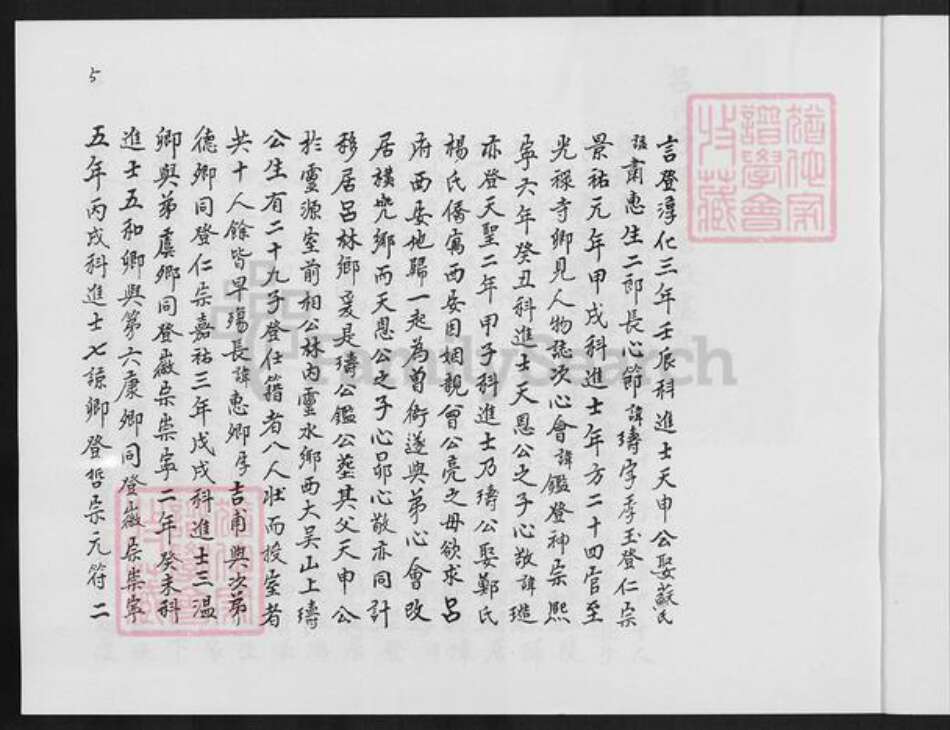 言登淳化三年壬辰科進士天申公娶蘇氏
謚肅惠生二郎長心節諱璹字季玉登仁宗
景祐元年甲戌科進士年方二十四官至
光祿寺卿見人物誌次心會諱鑑登神宗熙
寧六年癸丑科進士天恩公之子心敬諱璡
亦登天聖二年甲子科進士乃璹公娶鄭氏
楊氏僑寓西安因姻親曾公亮之母欲求呂
府西安地歸一起為曾衙遂與弟心會改
居樸兜鄉而天恩公之子心昴心敬亦同計
移居呂林鄉爰是璹公鑑公塟其父天申公
於靈源室前相公林內靈水鄉西大吳山上璹
公生有二十九子登仕籍者八人壯而授室者
共十人餘皆早殤長諱惠卿字吉甫與次弟
德卿同登仁宗嘉祐三年戊戌科進士三溫
卿與弟虞卿同登徽宗崇寧二年癸未科
進士五和卿與第六康卿同登徽宗崇寧
五年丙戌科進士七諒卿登哲宗元符二
5
猶他家
譜學會
收藏
FamilySearch